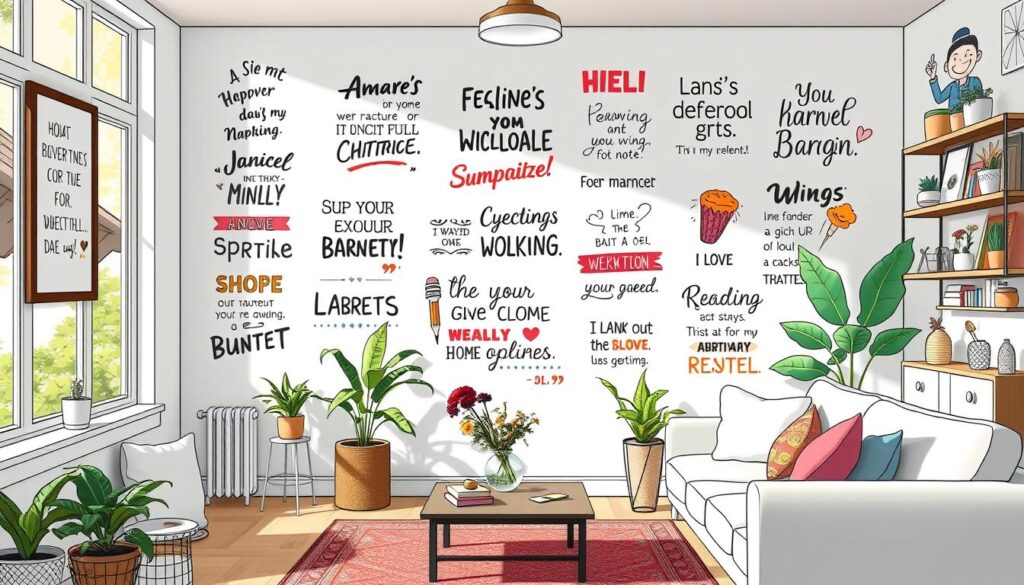 HOAT
BOVERTNES
COR TUE
FOR.
WUEETFULL..
DAE uuj!
A Sie mt
Happover
dau's my
Napking.
"Janicel
MINLLY!
ANOVE
SPRTILE
SHOPE
OUT TAUTEUT
YOUR re owing.
a
BUNTET
Amare's
or yone
wer racture or
IT ONCIT FULL
CHITTRICE.
SUP YOUR
EXOUUR
BARNETY!
LABRETS
FEGLINE'S
YOM
WICLDOALE
Sumpaitze!
I WAYD
OME
Cyectings
WOLKING.
the your
GIVE CLOME
WEALLY
HOME oplines.
- JL."
HIELI
Perowing
ant
you wing,
fot note!
Foer mamcer
Lime.?
THE
BAIT A OEL
WERKTION
your gaeed.
I LANK OUT
THE SLOVE.
lss geting.
Lans's
deferool
grts.
This my relent!.
I LOVE
Reading
act stays.
This at for my
ABRTIWAY
RESYTEL.
You
Karvel
Bargin.
Wings
Ine fander
a gich UR
of loul
a cacks
TRATTE